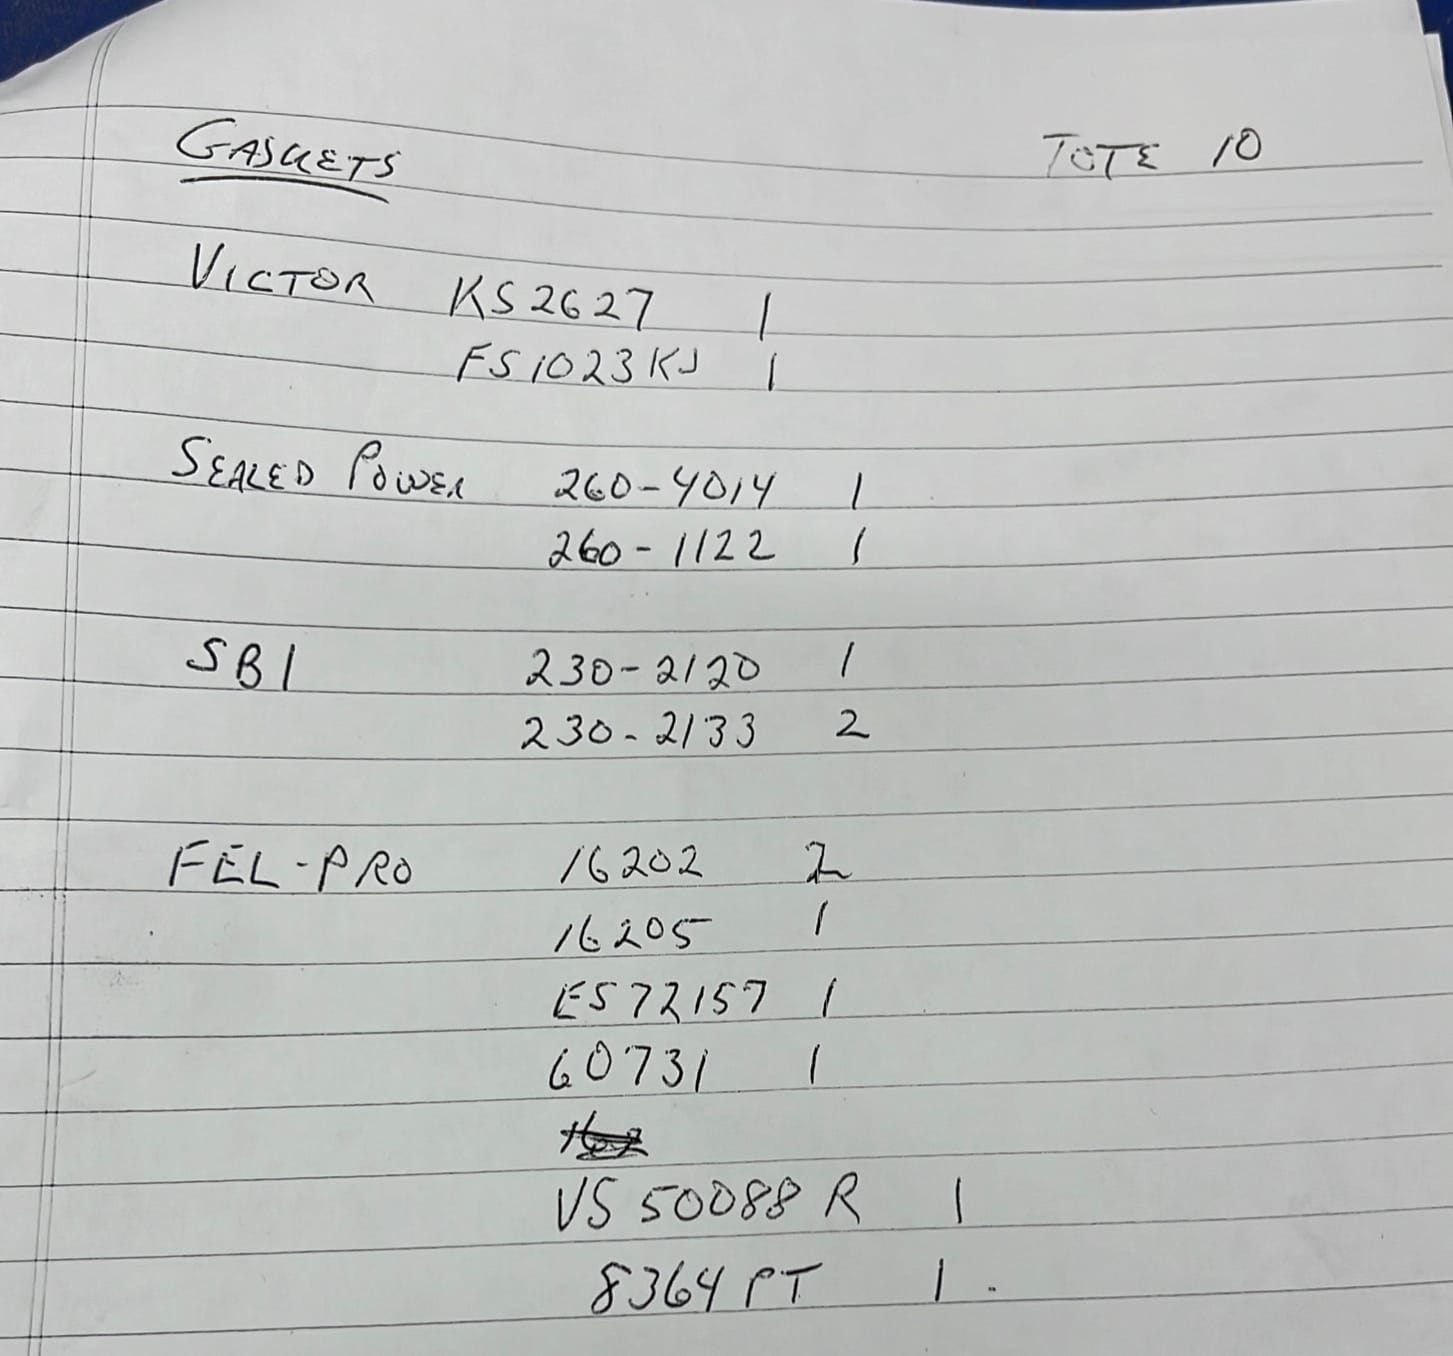 GASKETS TOTE 10
VICTOR KS2627 1
FS1023KJ 1
SEALED POWER 260-4014 1
260-1122 1
SB1 230-2120 1
230-2133 2
FEL-PRO 16202 2
16205 1
ES72157 1
60731 1
VS50088R 1
8364PT 1.